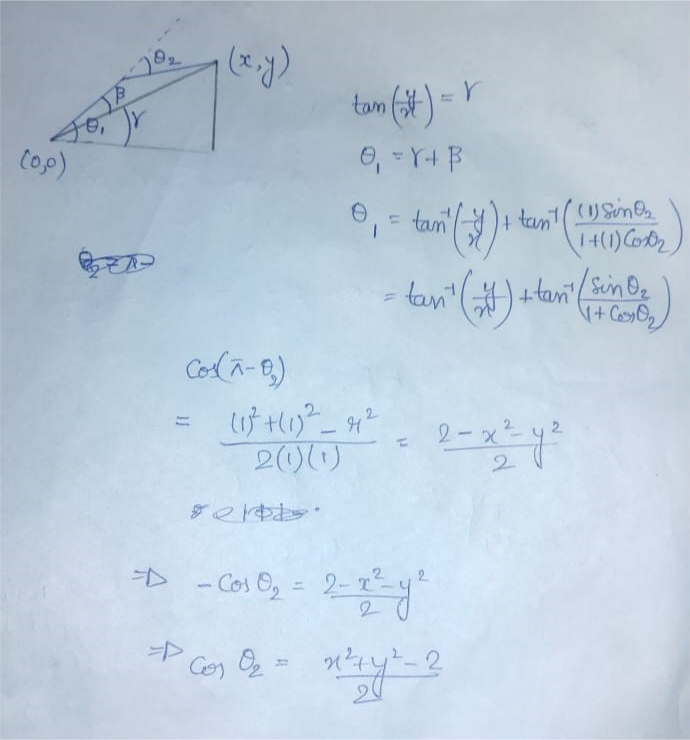 θ₂
(x,y)
β
θ₁
γ
(0,0)
tan(y/x) = γ
θ₁ = γ + β
θ₁ = tan⁻¹(y/x) + tan⁻¹((1) Sinθ₂ / 1+(1) Cosθ₂)
= tan⁻¹(y/x) + tan⁻¹(Sin θ₂ / 1 + Cos θ₂)
Cos(π - θ₂)
= (1)² + (1)² - r² / 2(1)(1) = 2 - x² - y² / 2
⇒ - Cos θ₂ = 2 - x² - y² / 2
⇒ Cos θ₂ = x² + y² - 2 / 2